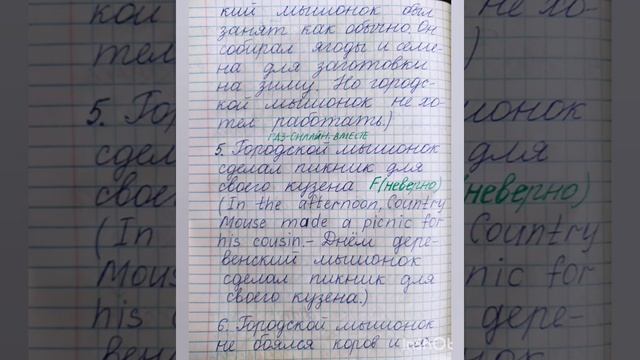 кий мышонок был
занят как обычно. Он
собирал ягоды и семе-
на для заготовки
на зиму. Но городс-
кой мышонок не хо-
тел работать.)
ГДЗ-ОНЛАЙН. ВМЕСТЕ
5. Городской мышонок
сделал пикник для
своего кузена F(неверно)
(In the afternoon, Country
Mouse made a picnic for
his cousin. – Днём дере-
венский мышонок
сделал пикник для
своего кузена.)
6. Городской мышонок
не боялся коров и